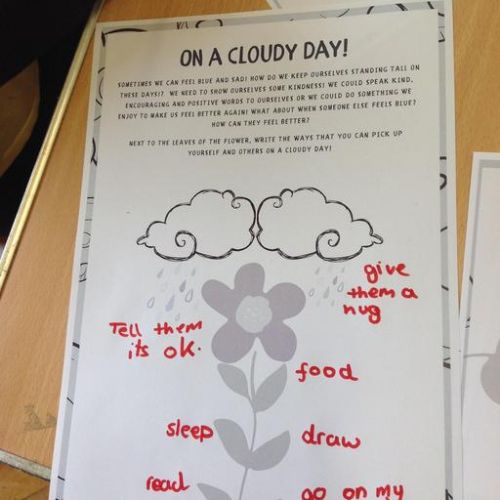 ON A CLOUDY DAY!
SOMETIMES WE CAN FEEL BLUE AND SAD! HOW DO WE KEEP OURSELVES STANDING TALL ON
THESE DAYS!? WE NEED TO SHOW OURSELVES SOME KINDNESS! WE COULD SPEAK KIND,
ENCOURAGING AND POSITIVE WORDS TO OURSELVES OR WE COULD DO SOMETHING WE
ENJOY TO MAKE US FEEL BETTER AGAIN! WHAT ABOUT WHEN SOMEONE ELSE FEELS BLUE?
HOW CAN THEY FEEL BETTER?
NEXT TO THE LEAVES OF THE FLOWER, WRITE THE WAYS THAT YOU CAN PICK UP
YOURSELF AND OTHERS ON A CLOUDY DAY!
give
them a
hug
Tell them
its ok.
food
sleep
draw
read
go on my